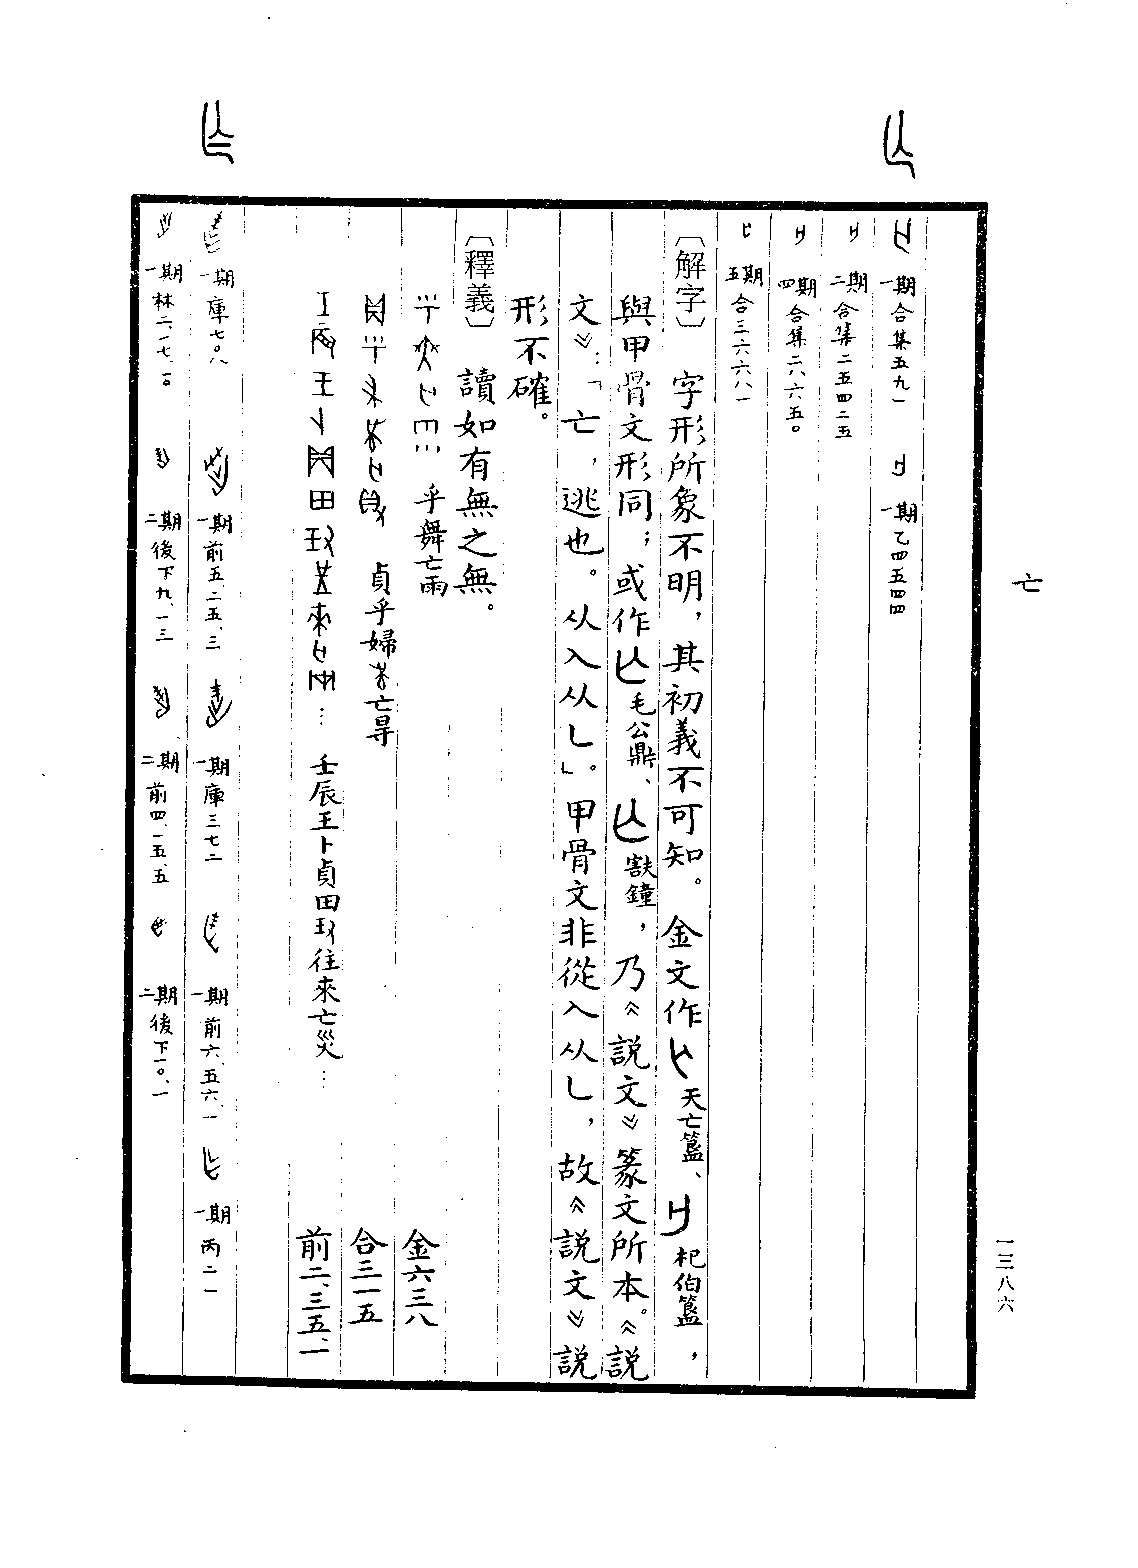 亡
一三八六
一期 合集五九一 一期 乙四五四四
二期 合集二五四二五
四期 合集二八六五〇
五期 合三六六八一
〔解字〕 字形所象不明，其初義不可知。金文作 天亡簋、 杞伯簋，
與甲骨文形同；或作 毛公鼎、 㝬鐘，乃《說文》篆文所本。《說
文》：「亡，逃也。从入从乚」。甲骨文非從入从乚，故《說文》說
形不確。
〔釋義〕 讀如有無之無。
乎舞亡雨 金六三八
貞乎婦 亡 合三一五
…壬辰王卜貞田 往來亡災… 前二、三五、一
一期 庫七〇八 一期 前五、二五、三 一期 庫三七二 一期 前六、五六、一 一期 丙二一
一期 林二、一七、一〇 二期 後下九、一三 二期 前四、一五、五 二期 後下一〇、一